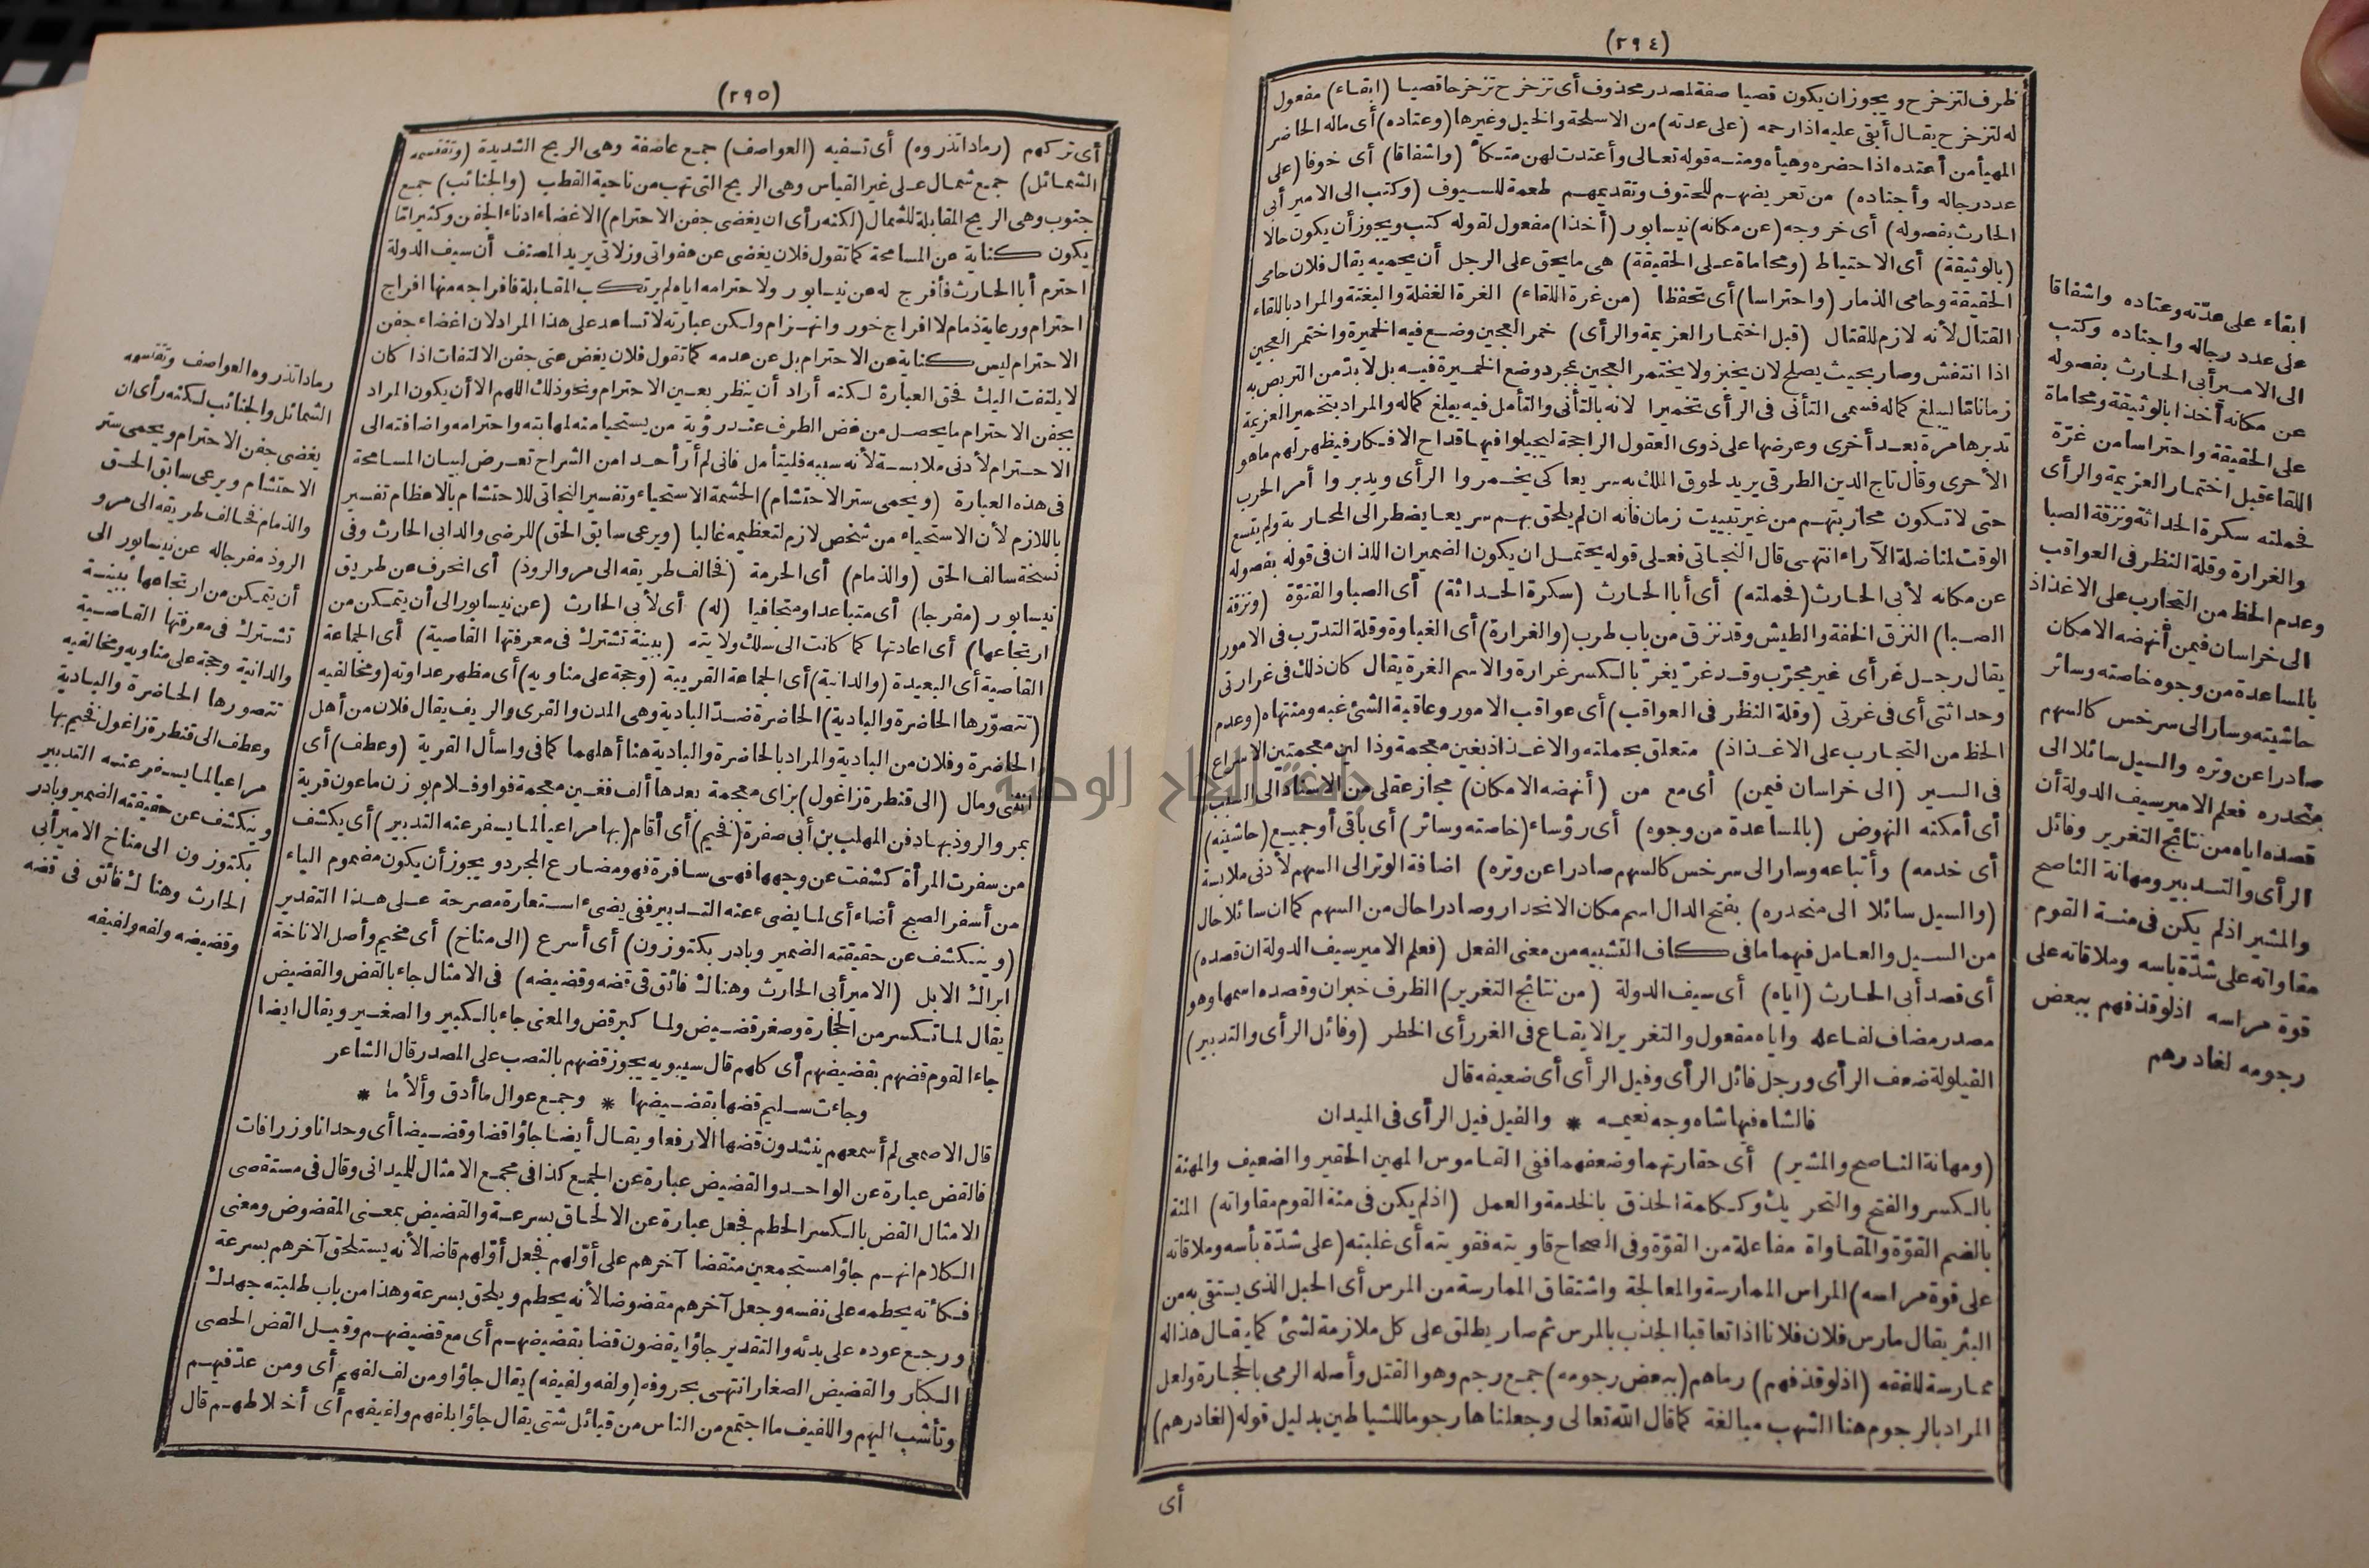 (٢٩٤)
ظرف لتزحزح ويجوز ان يكون قصيا صفة لمصدر محذوف أى تزحزح تزحزحا قصيا (ابقاء) مفعول
له لتزحزح يقال أبقى عليه اذا رحمه (على عدته) من الاسلحة والخيل وغيرها (وعتاده) أى ماله الحاضر
المهيأ من أعتده اذا حضره وهيأه ومنه قوله تعالى وأعتدت لهن متكأ (واشفاقا) أى خوفا (على
عدد رجاله وأجناده) من تعريضهم للحتوف وتقديمهم طعمة للسيوف (وكتب الى الامير أبى
الحارث بفصوله) أى خروجه (عن مكانه) نيسابور (أخذا) مفعول لقوله كتب ويجوز أن يكون حالا
(بالوثيقة) أى الاحتياط (ومحاماة على الحقيقة) هى ما يحق على الرجل أن يحميه يقال فلان حامى
الحقيقة وحامى الذمار (واحتراسا) أى تحفظا (من غرة اللقاء) الغرة الغفلة والبغتة والمراد باللقاء
القتال لأنه لازم للقتال (قبل اختمار العزيمة والرأى) خمر العجين وضع فيه الخميرة واختمر العجين
اذا انتفش وصار بحيث يصلح لان يخبز ولا يختمر العجين بمجرد وضع الخميرة فيه بل لا بد من التربص به
زمانا ليبلغ كماله فسمى التأنى فى الرأى تخميرا لانه بالتأنى والتأمل فيه يبلغ كماله والمراد بتخمير العزيمة
تدبرها مرة بعد أخرى وعرضها على ذوى العقول الراجحة ليجيلوا فيها قداح الافكار فيظهر لهم ما هو
الأحرى وقال تاج الدين الطرقى يريد لحوق الملك به سريعا كى يخمروا الرأى ويدبروا أمر الحرب
حتى لا تكون محاربتهم من غير تبييت زمان فانه ان لم يلحق بهم سريعا يضطر الى المحاربة ولم يتسع
الوقت لمناضلة الآراء انتهى قال النجاتى فعلى قوله يحتمل ان يكون الضميران اللذان فى قوله بفصوله
عن مكانه لأبى الحارث (فحملته) أى أبا الحارث (سكرة الحداثة) أى الصبا والفتوّة (ونزقة
الصبا) النزق الخفة والطيش وقد نزق من باب طرب (والغرارة) أى الغباوة وقلة التدرّب فى الامور
يقال رجل غر أى غير مجرّب وقد غرّ يغرّ بالكسر غرارة والاسم الغرة يقال كان ذلك فى غرارتى
وحداثتى أى فى غرتى (وقلة النظر فى العواقب) أى عواقب الامور وعاقبة الشئ غبه ومنتهاه (وعدم
الحظ من التجارب على الاغذاذ) متعلق بحملته والاغذاذ بغين معجمة وذالين معجمتين الاسراع
فى السير (الى خراسان فيمن) أى مع من (أنهضه الامكان) مجاز عقلى من الاسناد الى السبب
أى أمكنه النهوض (بالمساعدة من وجوه) أى رؤساء (خاصته وسائر) أى باقى أو جميع (حاشيته)
أى خدمه) وأتباعه وسار الى سرخس كالسهم صادرا عن وتره) اضافة الوتر الى السهم لأدنى ملابسة
(والسيل سائلا الى منحدره) بفتح الدال اسم مكان الانحدار وصادرا حال من السهم كما ان سائلا حال
من السيل والعامل فيهما ما فى كاف التشبيه من معنى الفعل (فعلم الامير سيف الدولة ان قصده)
أى قصد أبى الحارث (اياه) أى سيف الدولة (من نتائج التغرير) الظرف خبران وقصده اسمها وهو
مصدر مضاف لفاعله واياه مفعول والتغرير الايقاع فى الغرر أى الخطر (وفائل الرأى والتدبير)
الفيلولة ضعف الرأى ورجل فائل الرأى وفيل الرأى أى ضعيفه قال
فالشاه فيها شاه وجه نعيمه * والفيل فيل الرأى فى الميدان
(ومهانة الناصح والمشير) أى حقارتهما وضعفهما ففى القاموس المهين الحقير والضعيف والمهنة
بالكسر والفتح والتحريك وككلمة الحذق بالخدمة والعمل (اذ لم يكن فى منة القوم مقاواته) المنة
بالضم القوّة والمقاواة مفاعلة من القوّة وفى الصحاح قاويته فقويته أى غلبته (على شدّة بأسه وملاقاته
على قوة مراسه) المراس الممارسة والمعالجة واشتقاق الممارسة من المرس أى الحبل الذى يستقى به من
البئر يقال مارس فلان فلانا اذا تعاقبا الجذب بالمرس ثم صار يطلق على كل ملازمة لشئ كما يقال هذا له
ممارسة للفقه (اذ لو قذفهم) رماهم (ببعض رجومه) جمع رجم وهو القتل وأصله الرمى بالحجارة ولعل
المراد بالرجوم هنا الشهب مبالغة كما قال الله تعالى وجعلناها رجوما للشياطين بدليل قوله (لغادرهم)
أى
ابقاء على عدّته وعتاده واشفاقا
على عدد رجاله واجناده وكتب
الى الامير أبى الحارث بفصوله
عن مكانه أخذا بالوثيقة ومحاماة
على الحقيقة واحتراسا من غرّة
اللقاء قبل اختمار العزيمة والرأى
فحملته سكرة الحداثة ونزقة الصبا
والغرارة وقلة النظر فى العواقب
وعدم الحظ من التجارب على الاغذاذ
الى خراسان فيمن أنهضه الامكان
بالمساعدة من وجوه خاصته وسائر
حاشيته وسار الى سرخس كالسهم
صادرا عن وتره والسيل سائلا الى
منحدره فعلم الامير سيف الدولة أن
قصده اياه من نتائج التغرير وفائل
الرأى والتدبير ومهانة الناصح
والمشير اذ لم يكن فى منة القوم
مقاواته على شدّة بأسه وملاقاته على
قوة مراسه اذ لو قذفهم ببعض
رجومه لغادرهم
(٢٩٥)
أى تركهم (رمادا تذروه) أى تسفيه (العواصف) جمع عاصفة وهى الريح الشديدة (وتقتسمه
الشمائل) جمع شمال على غير القياس وهى الريح التى تهب من ناحية القطب (والجنائب) جمع
جنوب وهى الريح المقابلة للشمال (لكنه رأى ان يغضى جفن الاحترام) الاغضاء ادناء الجفن وكثيرا ما
يكون كناية عن المسامحة كما تقول فلان يغضى عن هفواتى وزلاتى يريد المصنف أن سيف الدولة
احترم أبا الحارث فأفرج له عن نيسابور ولاحترامه اياه لم يرتكب المقابلة فافراجه منها افراج
احترام ورعاية ذمام لا افراج خور وانهزام ولكن عبارته لا تساعد على هذا المراد لان اغضاء جفن
الاحترام ليس كناية عن الاحترام بل عن عدمه كما تقول فلان يغض عنى جفن الالتفات اذا كان
لا يلتفت اليك فحق العبارة لكنه أراد أن ينظر بعين الاحترام ونحو ذلك اللهم الا أن يكون المراد
بجفن الاحترام ما يحصل من غض الطرف عند رؤية من يستحيا منه لمهابته واحترامه واضافته الى
الاحترام لأدنى ملابسة لأنه سببه فليتأمل فانى لم أر أحدا من الشراح تعرض لبيان المسامحة
فى هذه العبارة (ويحمى ستر الاحتشام) الحشمة الاستحياء وتفسير النجاتى للاحتشام بالاعظام تفسير
باللازم لأن الاستحياء من شخص لازم لتعظيمه غالبا (ويرعى سابق الحق) للرضى والد أبى الحارث وفى
نسخة سالف الحق (والذمام) أى الحرمة (فخالف طريقه الى مرو الروذ) أى انحرف عن طريق
نيسابور (مفرجا) أى متباعدا ومتجافيا (له) أى لأبى الحارث (عن نيسابور الى أن يتمكن من
ارتجاعها) أى اعادتها كما كانت الى سلك ولايته (ببينة تشترك فى معرفتها القاصية) أى الجماعة
القاصية أى البعيدة (والدانية) أى الجماعة القريبة (وحجة على مناويه) أى مظهر عداوته (ومخالفيه
(تتصوّرها الحاضرة والبادية) الحاضرة ضدّ البادية وهى المدن والقرى والريف يقال فلان من أهل
الحاضرة وفلان من البادية والمراد بالحاضرة والبادية هنا أهلهما كما فى واسأل القرية (وعطف) أى
انثنى ومال (الى قنطرة زاغول) بزاى معجمة بعدها ألف فغين معجمة فواو فلام بوزن ماعون قرية
بمرو الروذ بها دفن المهلب بن أبى صفرة (فخيم) أى أقام (بها مراعيا لما يسفر عنه التدبير) أى يكشف
من سفرت المرأة كشفت عن وجهها فهى سافرة فهو مضارع المجرد ويجوز أن يكون مضموم الياء
من أسفر الصبح أضاء أى لما يضىء عنه التدبير ففى يضىء استعارة مصرحة على هذا التقدير
(وينكشف عن حقيقته الضمير وبادر بكتوزون) أى أسرع (الى مناخ) أى مخيم وأصل الاناخة
ابراك الابل (الامير أبى الحارث وهناك فائق فى قضه وقضيضه) فى الامثال جاء بالقض والقضيض
يقال لما تكسر من الحجارة وصغر قضيض ولما كبر قض والمعنى جاء بالكبير والصغير ويقال ايضا
جاء القوم قضهم بقضيضهم أى كلهم قال سيبويه يجوز قضهم بالنصب على المصدر قال الشاعر
وجاءت سليم قضها بقضيضها * وجمع عوال ما أدق وألأما *
قال الاصمعى لم أسمعهم ينشدون قضها الا رفعا ويقال أيضا جاؤا قضا وقضيضا أى وحدانا وزرافات
فالقض عبارة عن الواحد والقضيض عبارة عن الجمع كذا فى مجمع الامثال للميدانى وقال فى مستقصى
الامثال القض بالكسر الحطم فجعل عبارة عن الالحاق بسرعة والقضيض بمعنى المقضوض ومعنى
الكلام انهم جاؤا مستجمعين منقضا آخرهم على أوّلهم فجعل أوّلهم قاضا لأنه يستلحق آخرهم بسرعة
فكأنه يحطمه على نفسه وجعل آخرهم مقضوضا لأنه يحطم ويلحق بسرعة وهذا من باب طلبته جهدك
ورجع عوده على بدئه والتقدير جاؤا يقضون قضا بقضيضهم أى مع قضيضهم وقيل القض الحصى
الكبار والقضيض الصغار انتهى بحروفه (ولفه ولفيفه) يقال جاؤا ومن لف لفهم أى ومن عدّ فيهم
وتأشب اليهم واللفيف ما اجتمع من الناس من قبائل شتى يقال جاؤا بلفهم ولفيفهم أى أخلاطهم قال
رمادا تذروه العواصف وتقتسمه
الشمائل والجنائب لكنه رأى ان
يغضى جفن الاحترام ويحمى ستر
الاحتشام ويرعى سابق الحق
والذمام فخالف طريقه الى مرو
الروذ مفرجاله عن نيسابور الى
أن يتمكن من ارتجاعها ببينة
تشترك فى معرفتها القاصية
والدانية وحجة على مناويه ومخالفيه
تتصورها الحاضرة والبادية
وعطف الى قنطرة زاغول فخيم بها
مراعيا لما يسفر عنه التدبير
وينكشف عن حقيقته الضمير وبادر
بكتوزون الى مناخ الامير أبى
الحارث وهنالك فائق فى قضه
وقضيضه ولفه ولفيفه